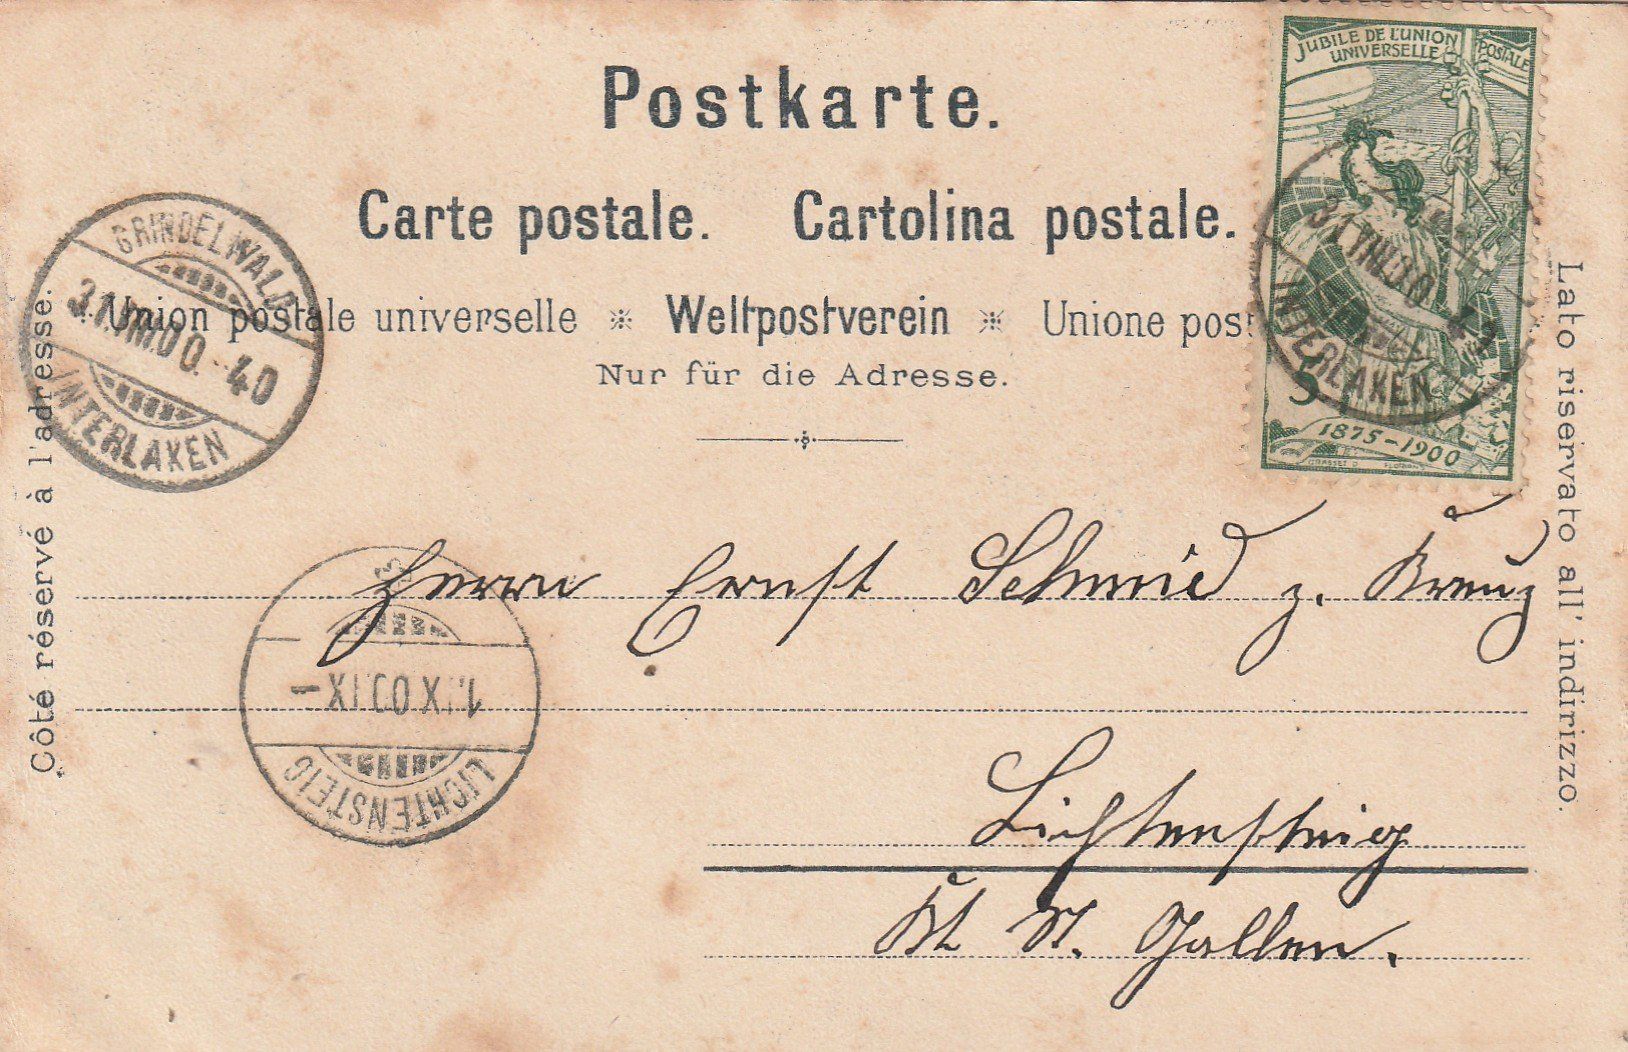 Postkarte.
Carte postale. Cartolina postale.
Union postale universelle ※ Weltpostverein ※ Unione post
Nur für die Adresse.
Côté réservé à l'adresse.
Lato riservato all' indirizzo.
JUBILÉ DE L'UNION POSTALE
UNIVERSELLE
5
1875-1900
GRASSET D.
INTERLAKEN
GRINDELWALD
31.VIII.00.-40
INTERLAKEN
Herrn Ernst Schmid z. Kreuz
1.IX.00.IX-
LICHTENSTEIG
Lichtensteig
Kt St. Gallen.